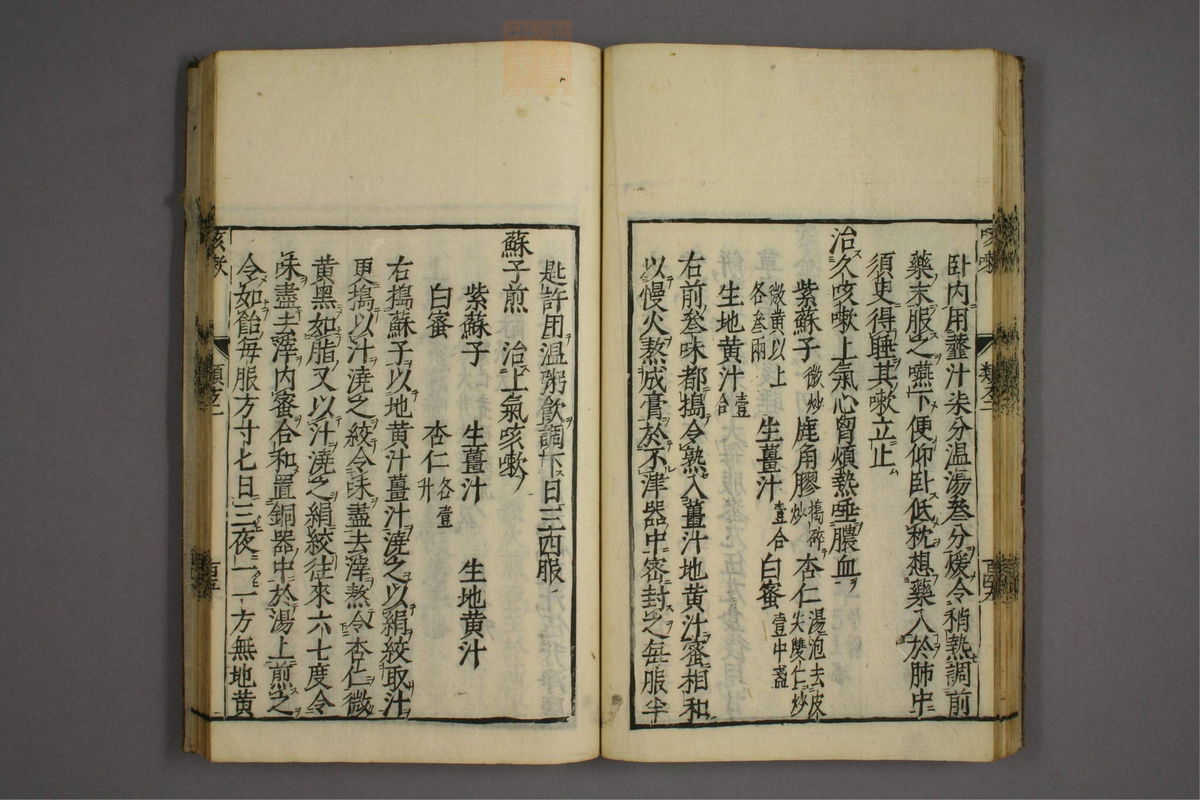 卧内用虀汁柒分温湯叄分煖令稍熱調前
藥末服之嚥下便仰卧低枕想藥入於肺中
須臾得睡其嗽立止
治久咳嗽上氣心胷煩熱唾膿血
紫蘇子微炒鹿角膠搗碎炒杏仁湯泡去皮尖雙仁炒
微黄以上各叄兩
生地黄汁壹合 生薑汁壹合 白蜜壹中盞
右前叄味都搗令熟入薑汁地黄汁蜜相和
以慢火熬成膏於不津器中密封之每服半
匙許用温粥飲調下日三四服
蘇子煎 治上氣咳嗽
紫蘇子 生薑汁 生地黄汁
白蜜 杏仁各壹升
右搗蘇子以地黄汁薑汁澆之以絹絞取汁
更搗以汁澆之絞令味盡去滓熬令杏仁微
黄黑如脂又以汁澆之絹絞往來六七度令
味盡去滓内蜜合和置銅器中於湯上煎之
令如飴每服方寸七日三夜一一方無地黄